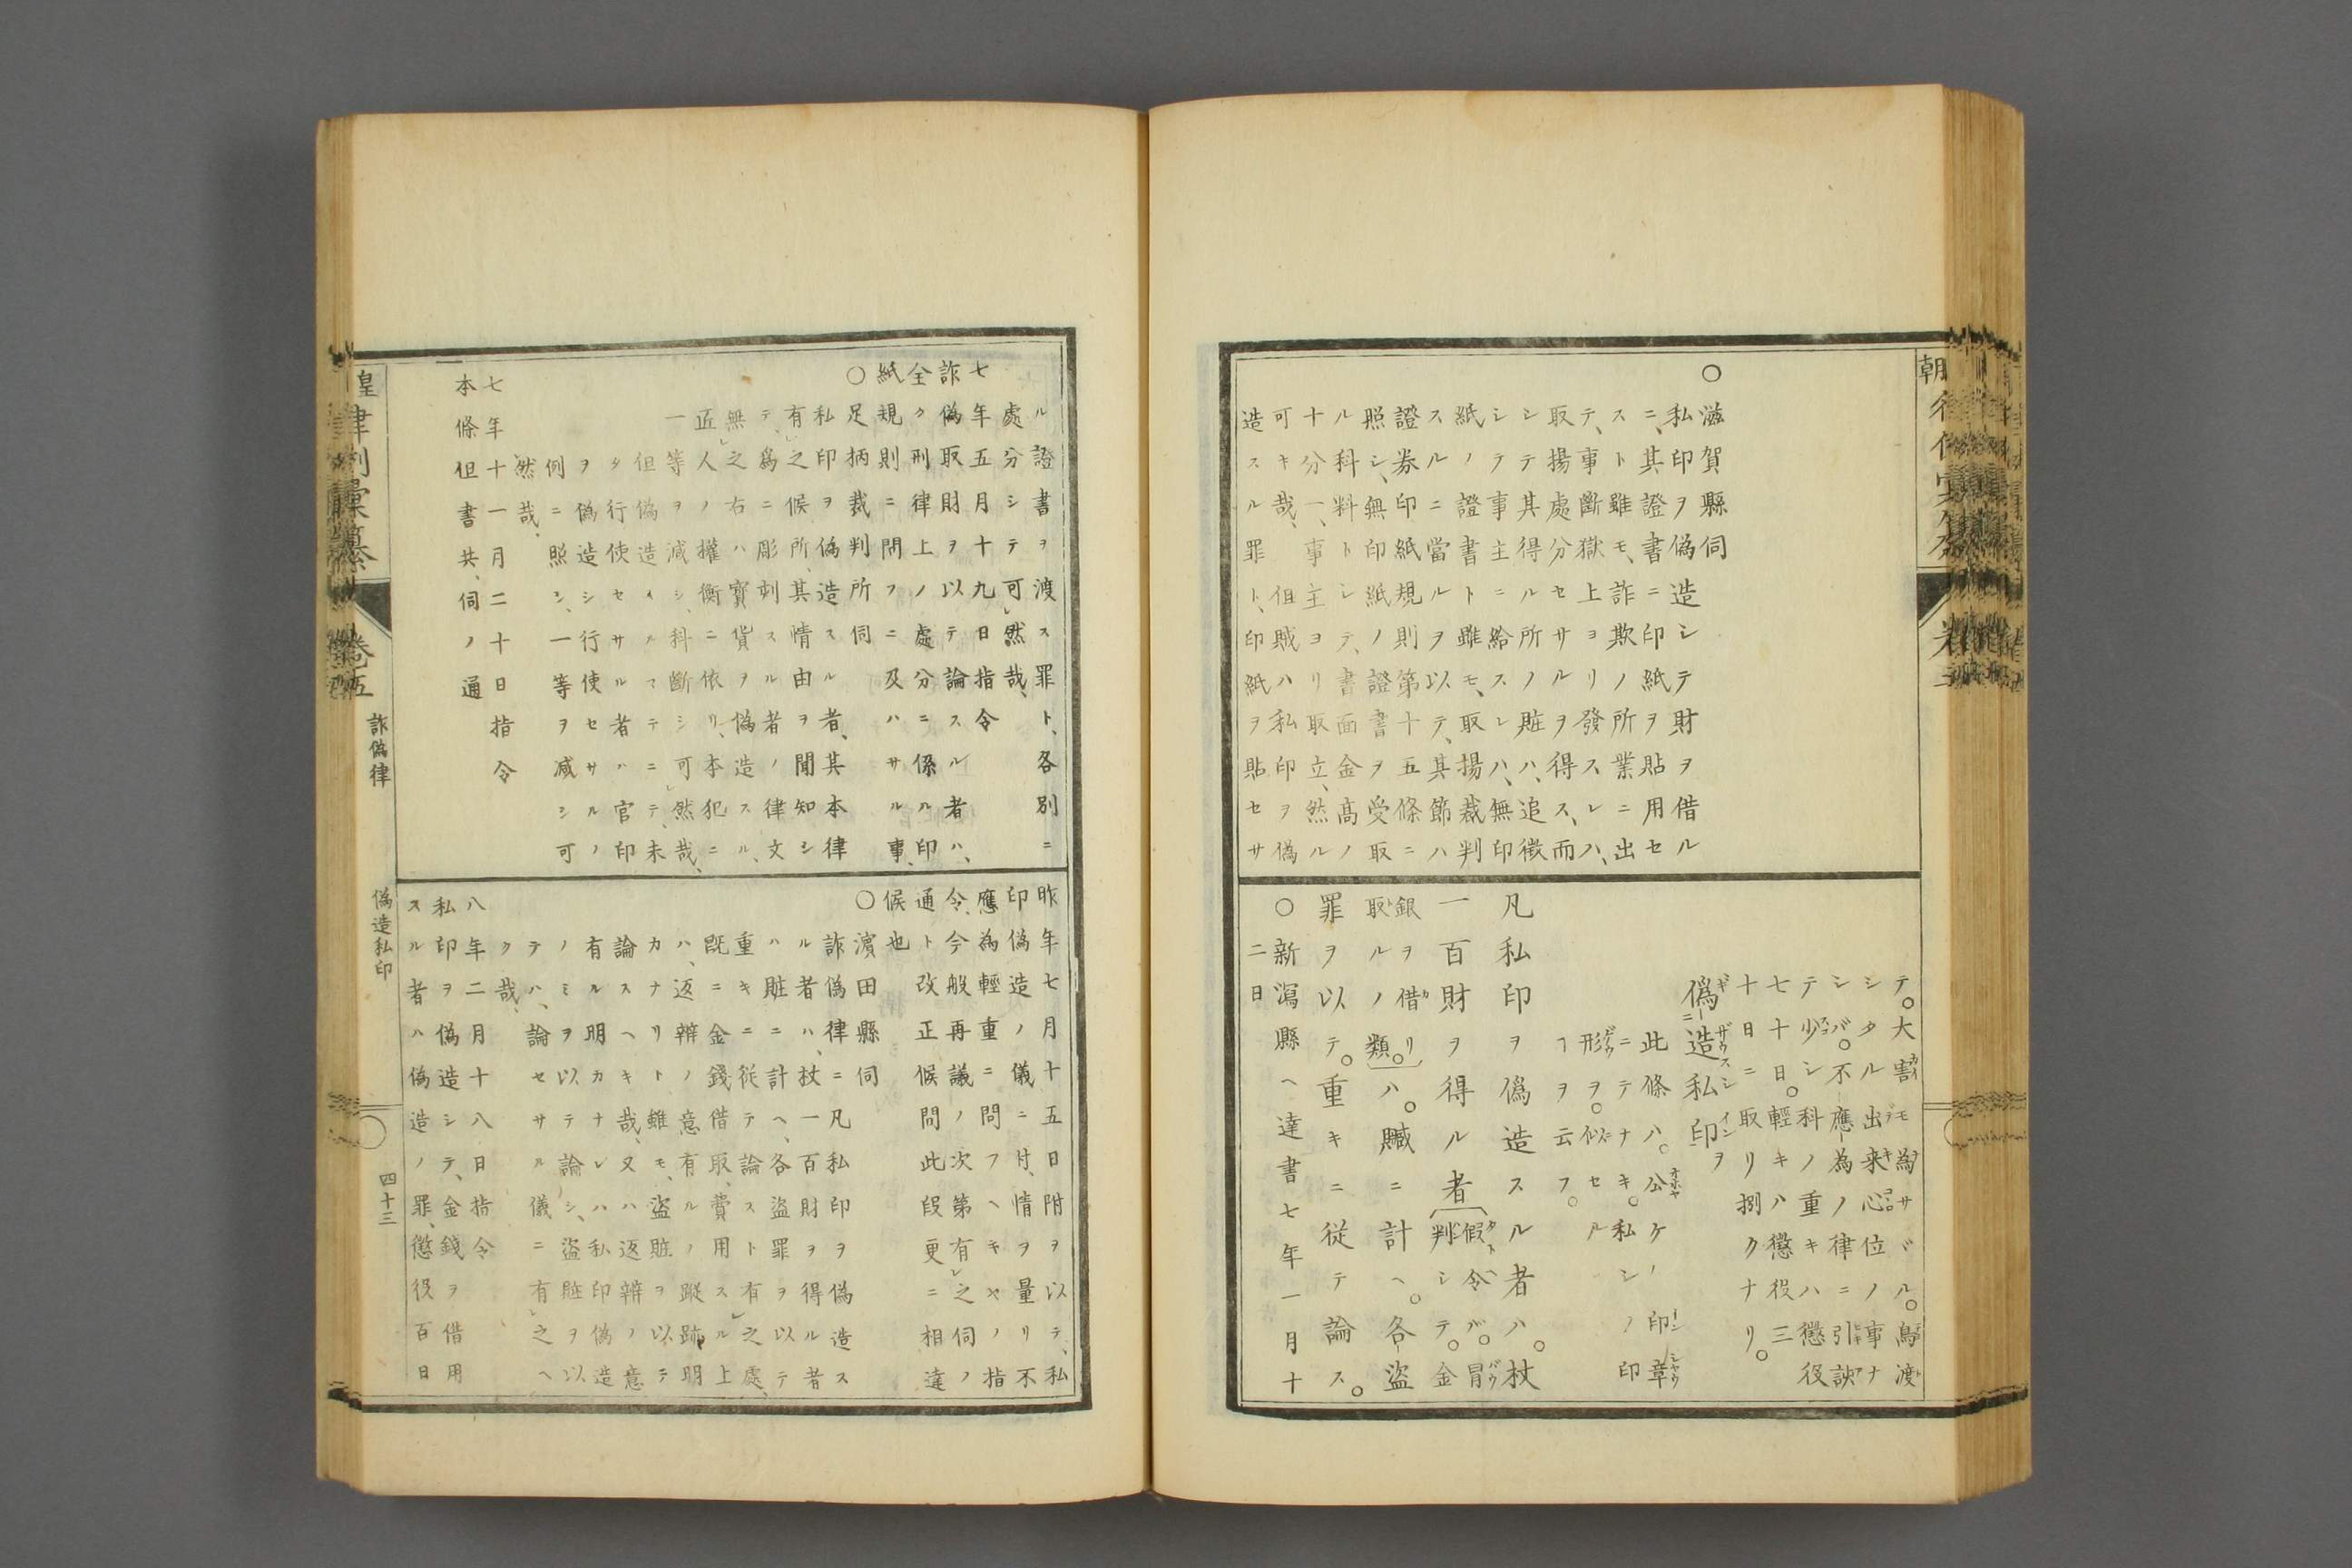 ○滋賀縣伺
私印ヲ偽造シテ財ヲ借ル
ニ、其證書ニ印紙ヲ貼用セ
スト雖モ、詐欺ノ所業ニ出
テ、事斷獄上ヨリ發スレハ、
取揚處分セサルヲ得ス、而
シテ其得ル所ノ賍ハ、追徴
シテ事主ニ給スレハ、無印
紙ノ證書ト雖モ、取揚裁判
スルニ當ルヲ以テ、其節ハ
證券印紙規則第十五條ニ
照シ、無印紙ノ證書ヲ受取
ル科料トシテ、書面金高ノ
十分一、事主ヨリ取立、然ル
可キ哉、但賊ハ私印ヲ偽
造スル罪ト、印紙ヲ貼セサ
テ。大割モ為サヾル。鳥渡
シタル出来心位ノ事ナ
シバ。不應為ノ律ニ引訣
テ少シ科ノ重キハ懲役
七十日。輕キハ懲役三
十日ニ取リ捌クナリ。
僞造私印
此條ハ。公ケノ印章
ニテナキ。私シノ印
形ヲ。似セル
ヿヲ云フ。
凡私印ヲ偽造スル者ハ。杖
一百財ヲ得ル者假令バ。冒判シテ。金
銀ヲ借リ取ルノ類。ハ。贓ニ計ヘ。各盗
罪ヲ以テ。重キニ従テ論ス。
○新瀉縣ヘ達書七年一月十
二日
ル證書ヲ渡ス罪ト、各別ニ
處分シテ可然哉、
七年五月十九日指令
詐偽取財ヲ以テ論スル者ハ、
全ク刑律上ノ處分ニ係ルハ印
紙規則ニ問フニ及ハサル事、
○足柄裁判所伺
私印ヲ偽造スル者、其本律
有之候所、其情由ヲ聞知シ
テ、爲ニ彫刻スル者ノ律文
無之右ハ寳貨ヲ偽造スル、
匠人ノ權衡ニ依リ、本犯ニ
一等ヲ減シ、科斷シ可然哉、
但偽造イスマテニテ、未
タ行使セサル者ハ官印
ヲ偽造シ行使セサルノ
例ニ照シ、一等ヲ減シ可
然哉、
七年十一月二十日指令
本條但書共、伺ノ通
昨年七月十五日附ヲ以テ、私
印偽造ノ儀ニ付、情ヲ量リ不
應為輕重ニ問フヘキヤノ指
令、今般再議ノ次第有之伺ノ
通ト改正候間此段更ニ相達
候也
○濱田縣伺
詐偽律ニ凡私印ヲ偽造ス
ル者ハ、杖一百財ヲ得ル者
ハ賍ニ計ヘ、各盗罪ヲ以テ
重キニ従テ論スト有之處、
既ニ金錢借取、費用スル上
ハ、返辨ノ意有ルノ蹤跡明
カナリト雖モ、盗賍ヲ以テ
論スヘキ哉、又ハ返辨ノ意
有ル明カナレハ私印偽造
ノミヲ以テ論シ、盗賍ヲ以
テハ、論セサル儀ニ有之ヘ
ク哉、
八年二月十八日指令
私印ヲ偽造シテ、金錢ヲ借用
スル者ハ偽造ノ罪、懲役百日
皇律例彙纂
卷五
詐偽律
偽造私印
四十三